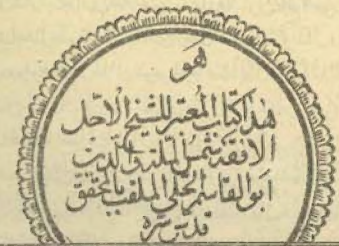 هو
هذا كتاب المعتبر للشيخ الاجل
الافقه شمس الملة والدين
ابو القاسم الحلي الملقب بالمحقق
قدس سره